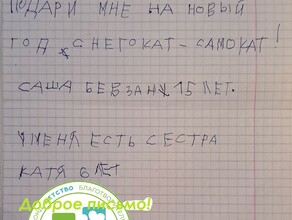 ПОДАРИ МНЕ НА НОВЫЙ
ГОД СНЕГОКАТ-САМОКАТ!
САША БЕВЗАНЖ 15 ЛЕТ.
УМЕНЯ ЕСТЬ СЕСТРА
КАТЯ 6 ЛЕТ
Доброе письмо!